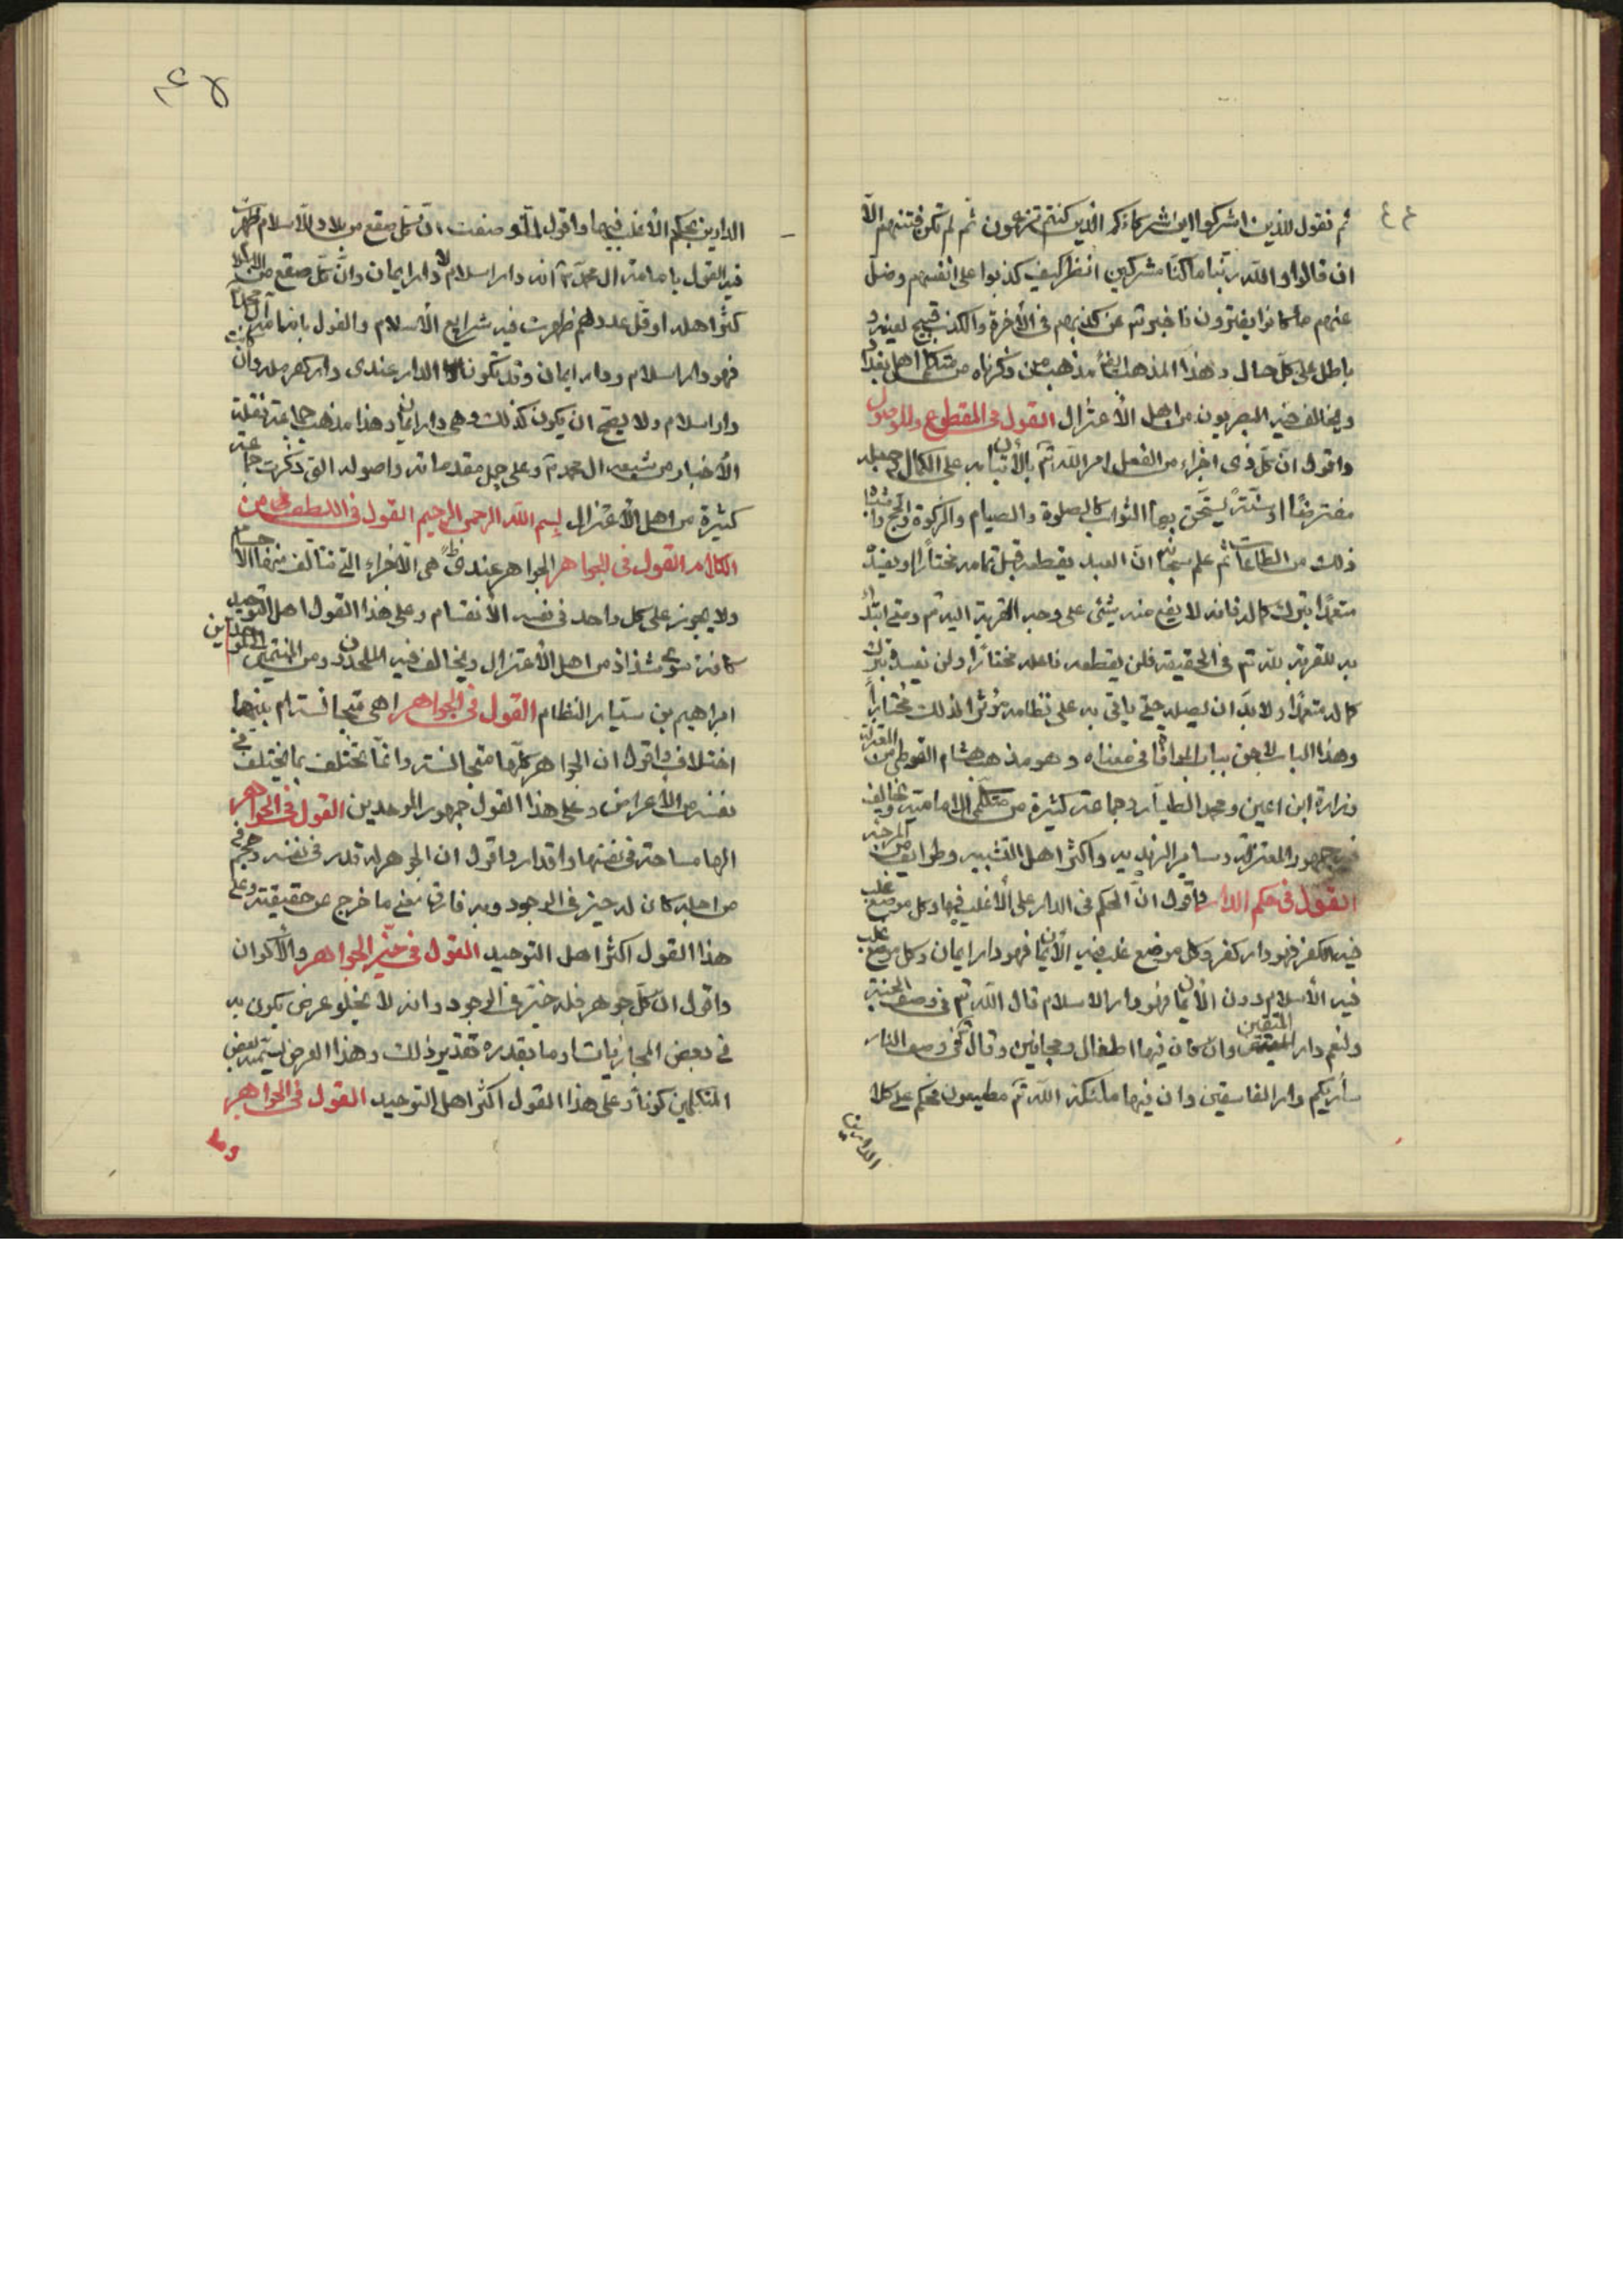 ثم نقول للذين اشركوا اين شركاؤكم الذين كنتم تزعمون ثم لم تكن فتنتهم الّا
ان قالوا والله ربنا ما كنّا مشركين انظر كيف كذبوا على انفسهم وضلّ
عنهم ما كانوا يفترون فاخبر تم عن كذبهم فى الأخرة والكذب قبيح لعينه و
باطل على كلّ حال وهذا المذهب ايضاً مذهب من ذكرناه من متكلمى اهل بغداد
ويخالف فيه البصريون من اهل الأعتزال القول فى المقطوع والموصول
واقول انّ كلّ ذى اجزاء من الفعل امر الله تم بالأتيان به على الكمال وجعله
مفترضًا او سنّة يستحّق بها الثواب كالصلوة والصيام والزكوة والحج و
ذلك من الطاعات ثم علم سبحانه انّ العبد يقطعه قبل تمامه مختارًا او يفسد
متعمدًا بترك كماله فانه لا يقع منه شيئى على وجه القربة اليه تم ومتى ابتدأ
به للقربة لله تم فى الحقيقة فلن يقطعه فاعله مختارًا ولن يفسد بترك
كماله متعمدًا ولا بدّ ان يصله حتى ياتى به على نظامه لذلك مختارًا
وهذا الباب لاحق بباب الموافاة فى معناه وهو مذهب هشام الفوطى من المعتزلة
وزرارة ابن اعين ومحمد الطيار وجماعة كثيرة من متكلّمى الامامية ويخالف
فيه جمهور المعتزلة وسائر الزيديه واكثر اهل التشبيه وطوايف من المرجئة
القول فى حكم الدار واقول انّ الحكم فى الدار على الأغلب فيها وكل موضع غلب
فيه الكفر فهو دار كفر وكل موضع غلب فيه الأيمان فهو دار ايمان وكل موضع غلب
فيه الأسلام دون الأيمان فهو دار الاسلام قال الله تم فى وصف الجنة
ولنعم دار المتقين وان كان فيها اطفال ومجانين وقال فى وصف النار
سأريكم دار الفاسقين وان فيها ملئكة الله تم مطيعون فحكم على كلا
الدارين
٤٤
الدارين بحكم الأغلب فيهما واقول انّ كلّ صقع من بلاد الاسلام ظهرت
فيه القول بامامة ال محمد م انه دار اسلام ودار ايمان وانّ كلّ صقع من بلاد
كثر اهله او قلّ عددهم ظهرت فيه شرايع الأسلام والقول بامامة آل محمد
فهو دار اسلام ودار ايمان وقد تكون الدار عندى دار كفر ملة وان كانت
دار اسلام ولا يصح ان يكون كذلك وهى دار ايمان وهذا مذهب جماعة نقلة
الأخبار من شيعه ال محمد م وعلى جل مقدماته واصوله التى ذكرت جماعة
كثيرة من اهل الأعتزال بسم الله الرحمن الرحيم القول فى اللطيف من
الكلام القول فى الجواهر الجواهر عندى هى الأجزاء التى تتالف منها الاجسام
ولا يجوز على كل واحد فى نفسه الأنقسام وعلى هذا القول اهل التوحيد
كافة سوى شذاذ من اهل الأعتزال ويخالف فيه الملحدون ومن المنتمين الى الموحدين
ابراهيم بن سيّار النظام القول فى الجواهر اهى متجانسة ام بينها
اختلاف واقول ان الجواهر كلّها متجانسة وانّما تختلف بما يختلف فى
نفسه من الأعراض وعلى هذا القول جمهور الموحدين القول فى الجواهر
الها مساحة فى نفسها واقدار واقول ان الجوهر له قدر فى نفسه وحجم
من اجله كان له حيز فى الوجود وبه فارق معنى ما خرج عن حقيقته وعلى
هذا القول اكثر اهل التوحيد القول فى حيّز الجواهر والأكوان
واقول ان كلّ جوهر فله حيّز فى الوجود وانه لا يخلو عرض يكون به
فى بعض المحاذيات او ما يقدره تقدير ذلك وهذا العرض يسمّيه بعض
المتكلمين كوناً وعلى هذا القول اكثر اهل التوحيد القول فى الجواهر
وما